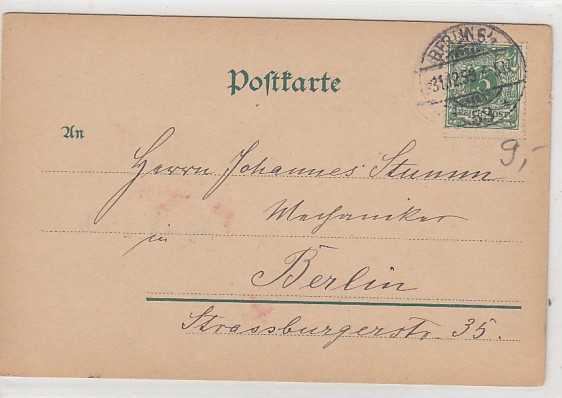 Postkarte
BERLIN S.
31.12.99
5
REICHSPOST
53
An
9,-
Herrn Johannes Stumm
Mechaniker
in
Berlin
Strassburgerstr. 35.